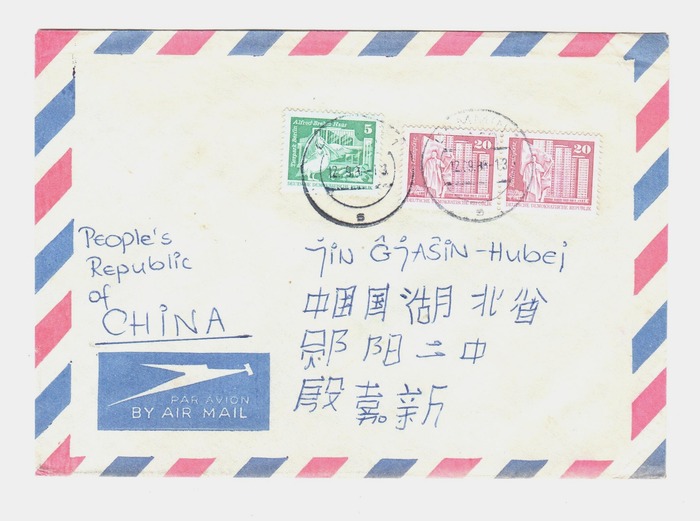 5
Alfred-Brehm Haus
Tierpark Berlin
DEUTSCHE DEMOKRATISCHE REPUBLIK
20
DEUTSCHE DEMOKRATISCHE REPUBLIK
20
DEUTSCHE DEMOKRATISCHE REPUBLIK
s
s
People's
Republic
of
CHINA
Ĵin ĜĴAŜIN-Hubej
中国国湖北省
郧阳二中
殷嘉新
PAR AVION
BY AIR MAIL